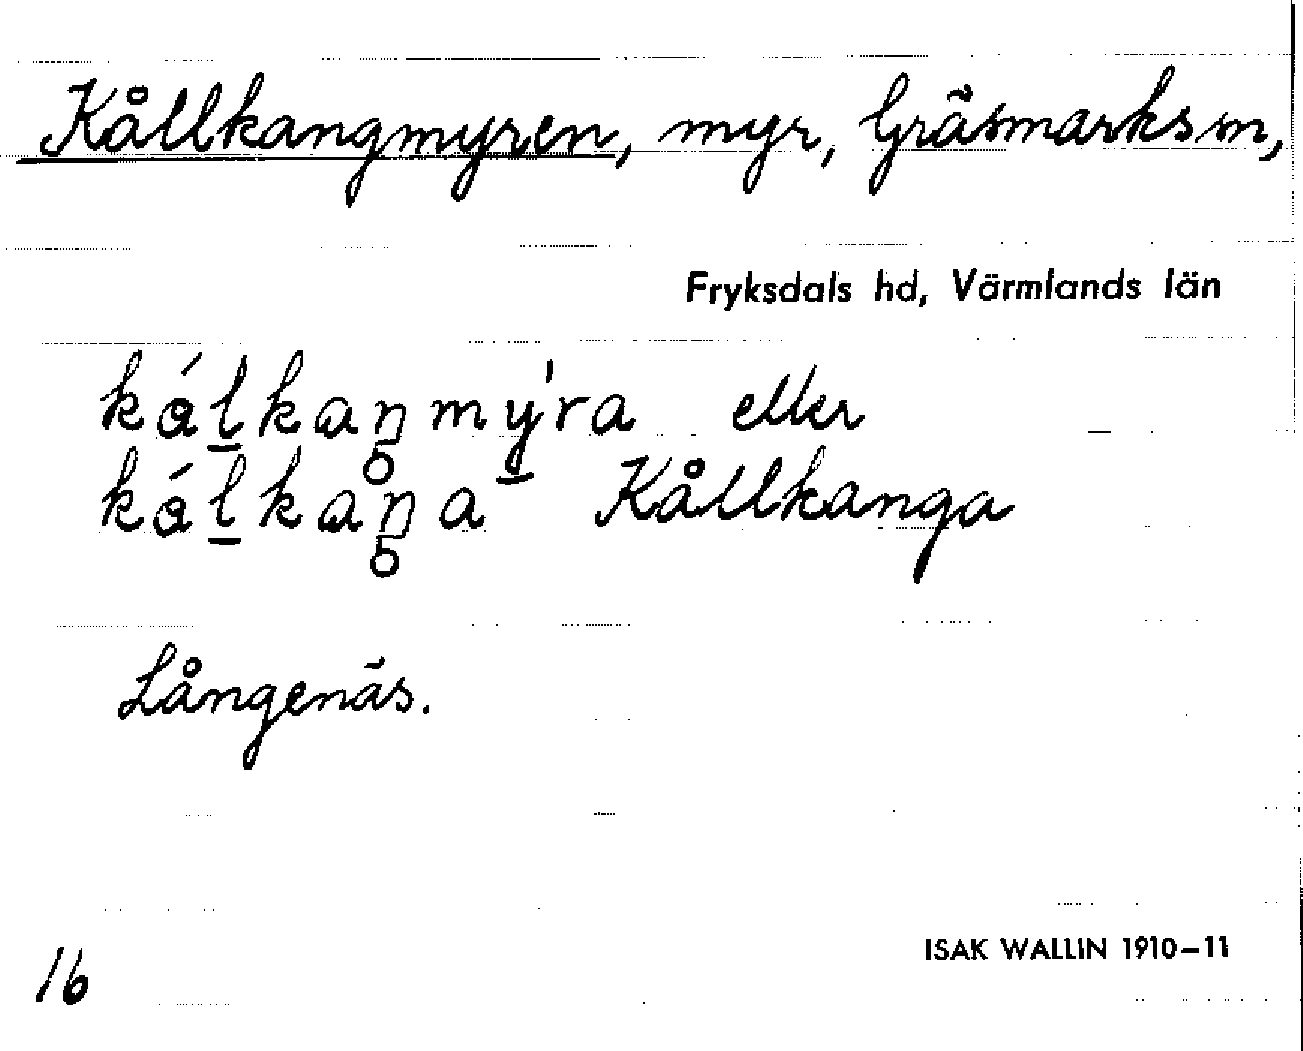 Kållkangmyren, myr, Gräsmarks sn,
Fryksdals hd, Värmlands län
kålkaŋmýra eller
kålkaŋa Kållkanga
Långenäs.
16
ISAK WALLIN 1910–11